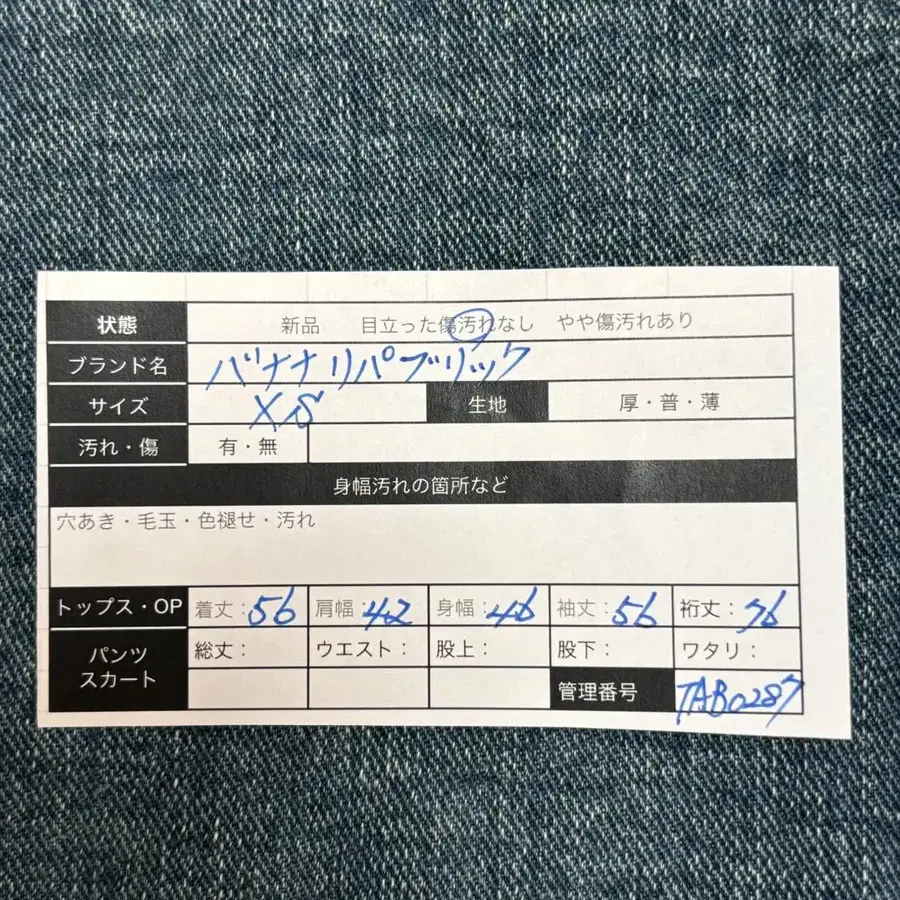 状態 新品 目立った傷汚れなし やや傷汚れあり
ブランド名 バナナリパブリック
サイズ XS 生地 厚・普・薄
汚れ・傷 有・無
身幅汚れの箇所など
穴あき・毛玉・色褪せ・汚れ
トップス・OP 着丈：56 肩幅：42 身幅：46 袖丈：56 裄丈：76
パンツ スカート 総丈： ウエスト： 股上： 股下： ワタリ：
管理番号 TAB0287